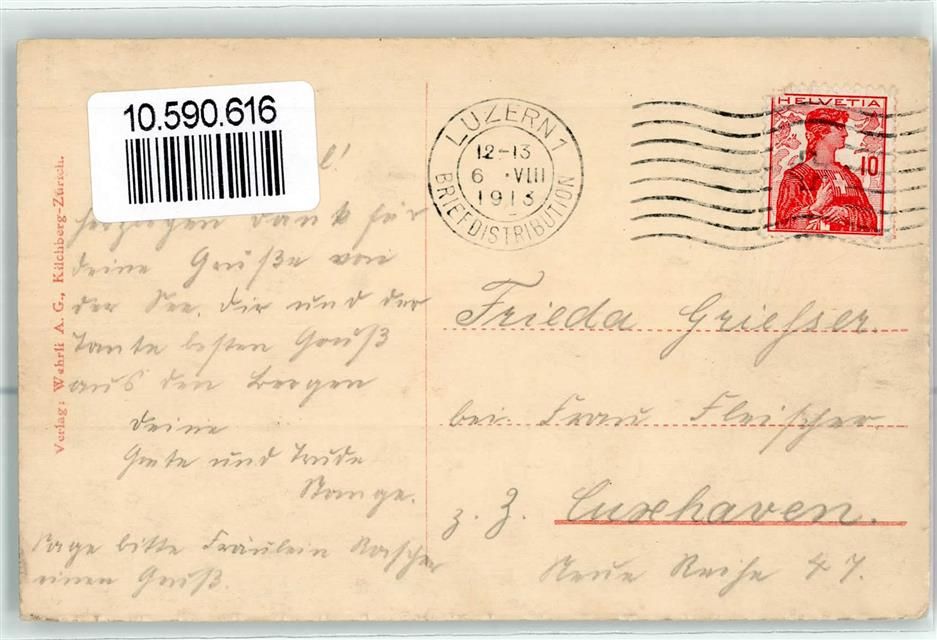 10.590.616
LUZERN 1
12-13
6. VIII
1913
BRIEFDISTRIBUTION
HELVETIA
10
Verlag: Wehrli A. G., Kilchberg-Zürich.
l!
herzigen Dank für
deine Grüße von
der See. Dir und der
Tante besten Gruß
aus den Bergen
deine
Grete und Trude
Stange.
Sage bitte Fräulein
einen Gruß.
Frieda Griesser.
bei Frau Fleischer
z. Z. Cuxhaven.
Neue Reihe 47.